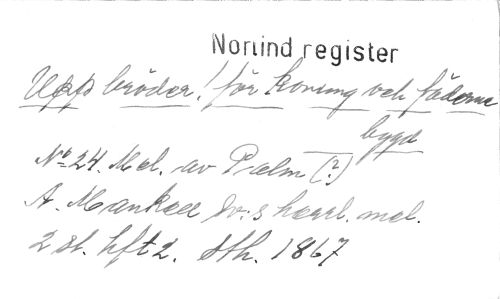 Norlind register
Upp bröder! för konung och fäderne
bygd
No 24. Mel. av Palm (?)
A. Mankell Sv:s härl. mel.
2 st. hft 2. Sth. 1867